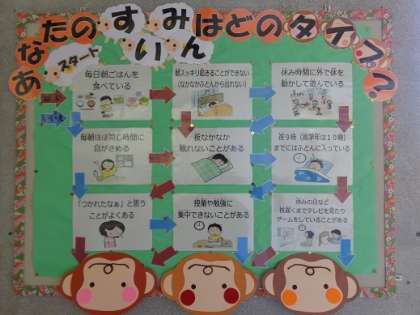 あなたのすいみんはどのタイプ?
スタート
毎日朝ごはんを
食べている
朝スッキリ起きることができない
(なかなかふとんから出れない)
休み時間に外で体を
動かして遊んでいる
毎朝ほぼ同じ時間に
目がさめる
夜なかなか
眠れないことがある
夜9時(高学年は10時)
までにはふとんに入っている
「つかれたなぁ」と思う
ことがよくある
授業や勉強に
集中できないことがある
休みの日など
夜遅くまでテレビを見たり
ゲームをしていることがある